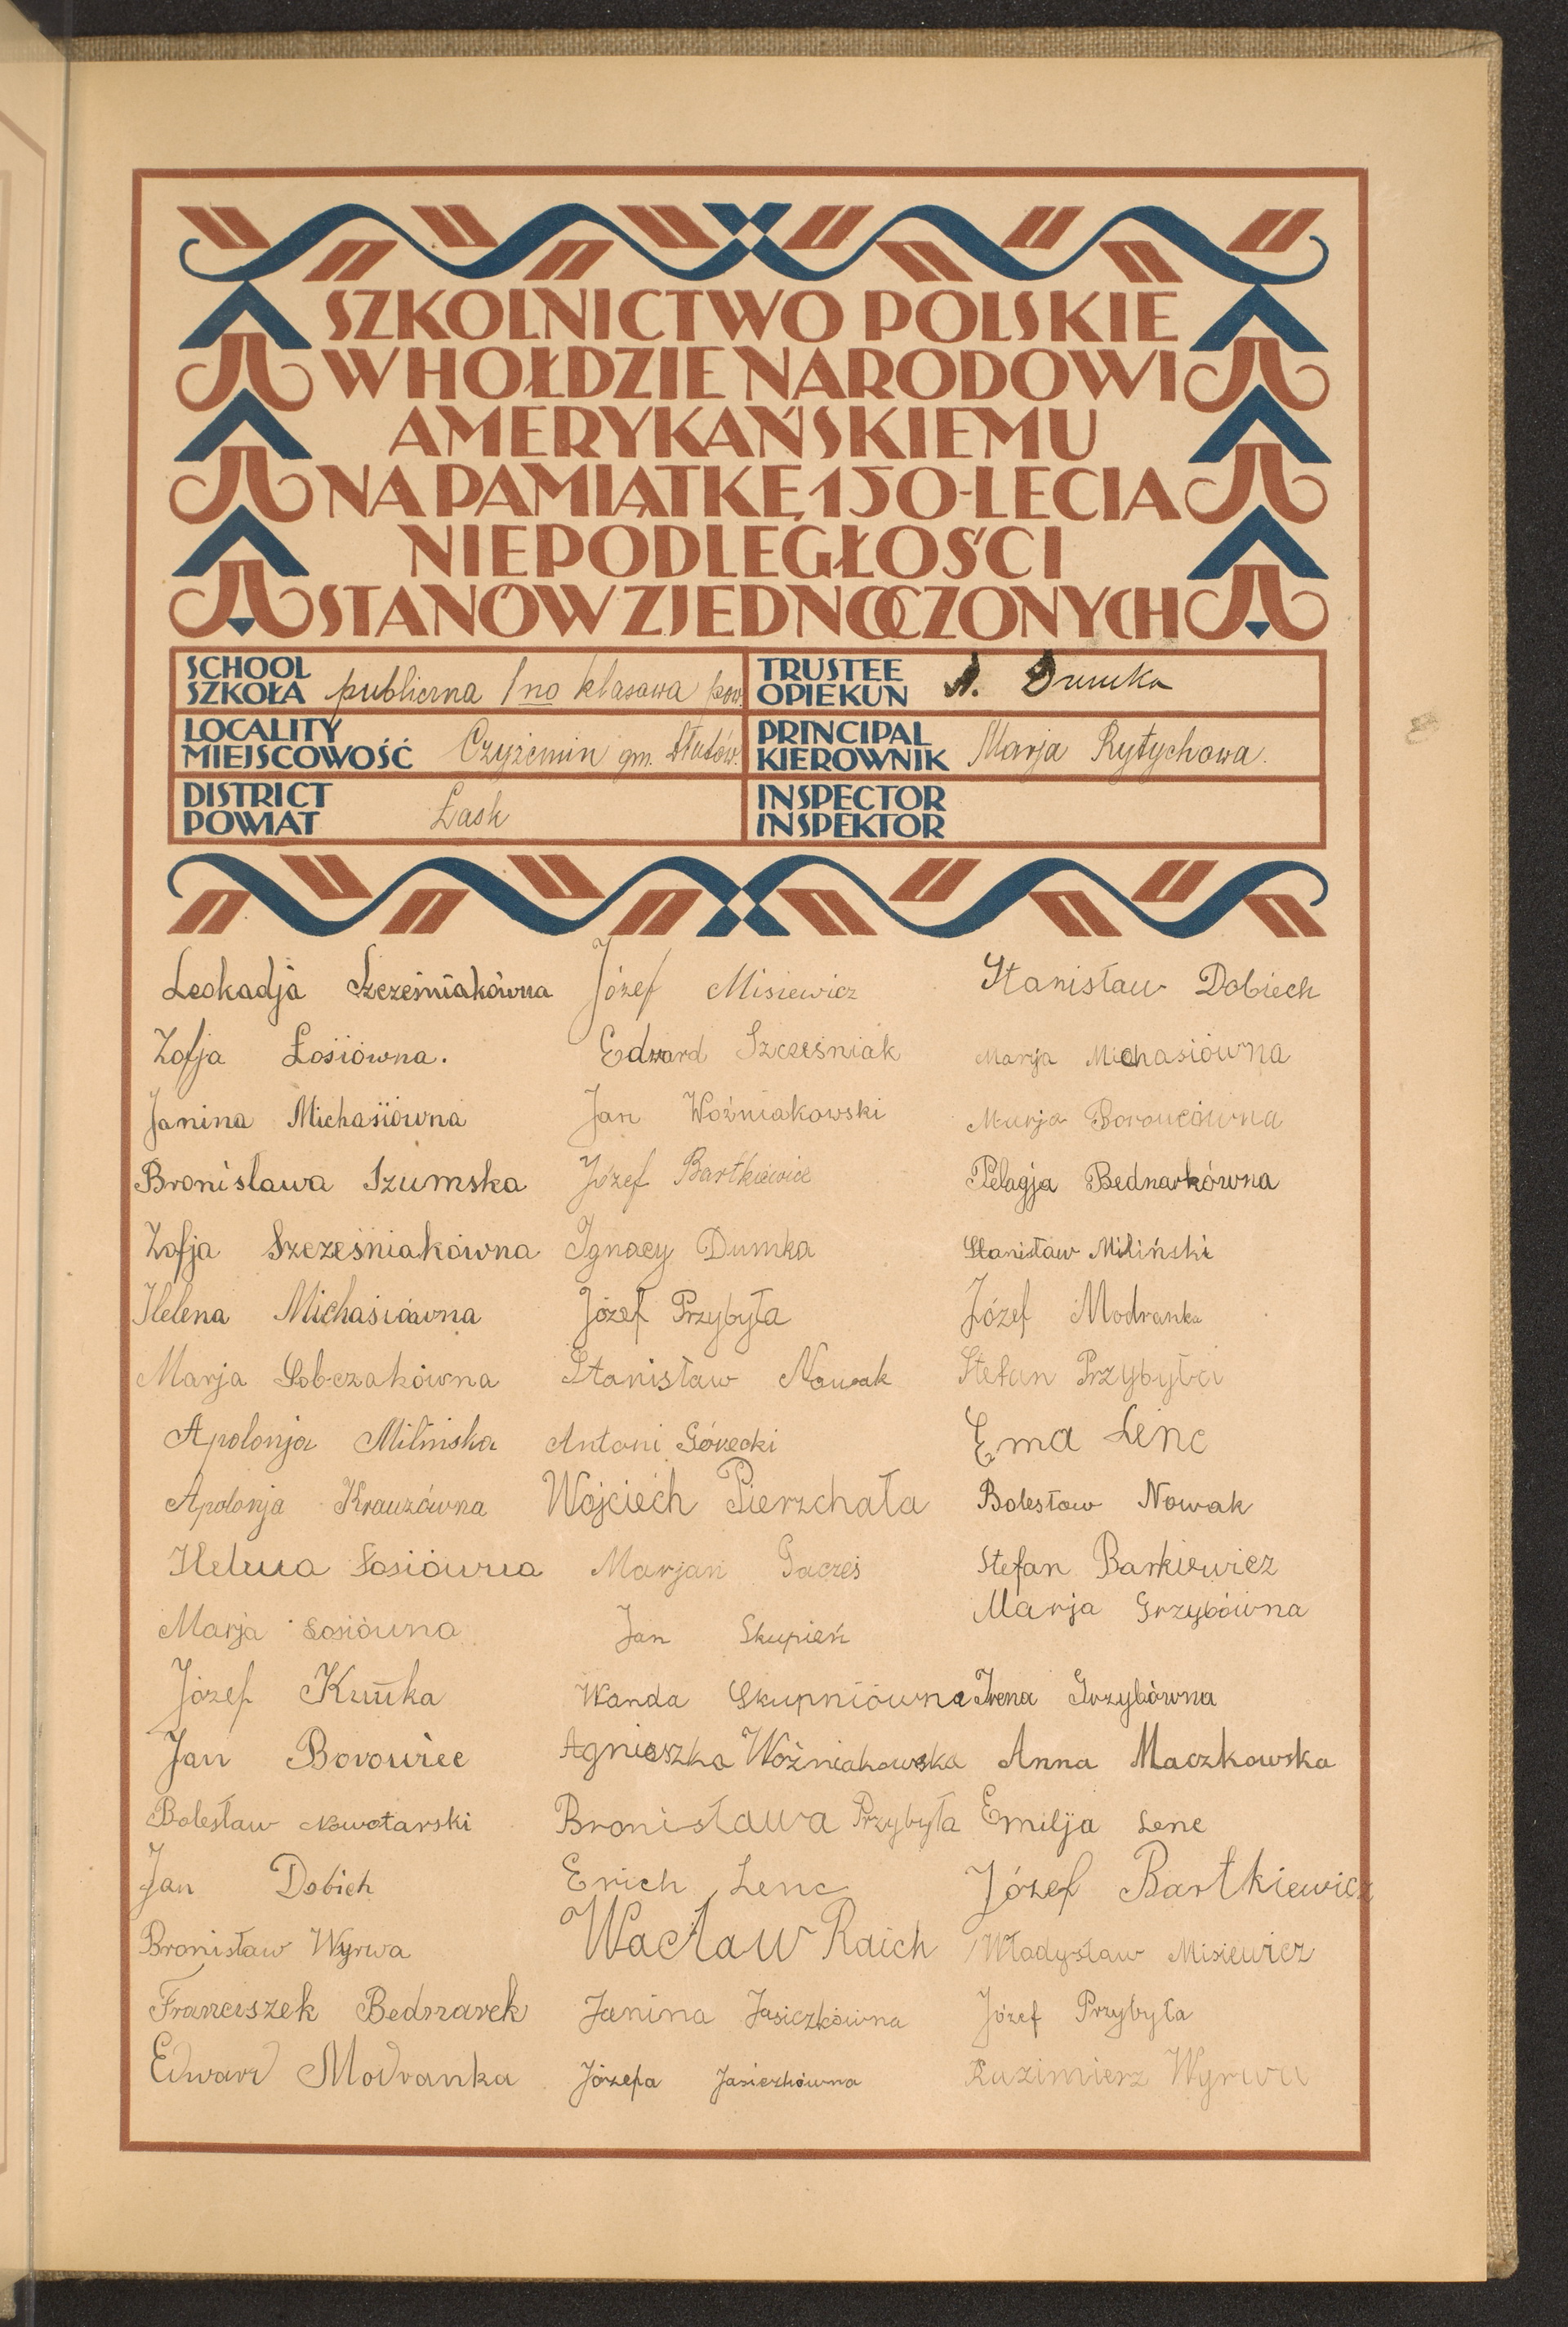 SZKOLNICTWO POLSKIE
W HOŁDZIE NARODOWI
AMERYKAŃSKIEMU
NA PAMIĄTKĘ 150-LECIA
NIEPODLEGŁOŚCI
STANÓW ZJEDNOCZONYCH
SCHOOL
SZKOŁA publiczna 1no klasowa pow.
TRUSTEE
OPIEKUN Dumka
LOCALITY
MIEJSCOWOŚĆ Czyżemin gm. Dłutów.
PRINCIPAL
KIEROWNIK Marja Rytychowa.
DISTRICT
POWIAT Łask
INSPECTOR
INSPEKTOR
Leokadja Szcześniakówna
Zofja Łosiówna.
Janina Michasiówna
Bronisława Szumska
Zofja Szcześniakówna
Helena Michasiówna
Marja Sobczakówna
Apolonja Milińska
Apolonja Krauzówna
Helena Łosiówna
Marja Łosiówna
Józef
Jan Borowiec
Bolesław Nowotarski
Jan Dobich
Bronisław Wyrwa
Franciszek Bednarek
Edward Modranka
Józef Misiewicz
Edward Szcześniak
Jan Woźniakowski
Józef Bartkiewicz
Ignacy Dumka
Józef Przybyła
Stanisław Nowak
Antoni Górecki
Wojciech Pierzchała
Marjan
Jan Skupień
Wanda Skupniówna
Agnieszka Woźniakowska
Bronisława Przybyła
Erich Lenc
Wacław Raich
Janina Jasiczkówna
Józefa Jasiczkówna
Stanisław Dobiech
Marja Michasiówna
Marja
Pelagja Bednarkówna
Stanisław Miliński
Józef Modranka
Stefan Przybyła
Ema Lenc
Bolesław Nowak
Stefan Barkiewicz
Marja Grzybówna
Irena Grzybówna
Anna Maczkowska
Emilja Lenc
Józef Bartkiewicz
Władysław Misiewicz
Józef Przybyła
Kazimierz Wyrwa